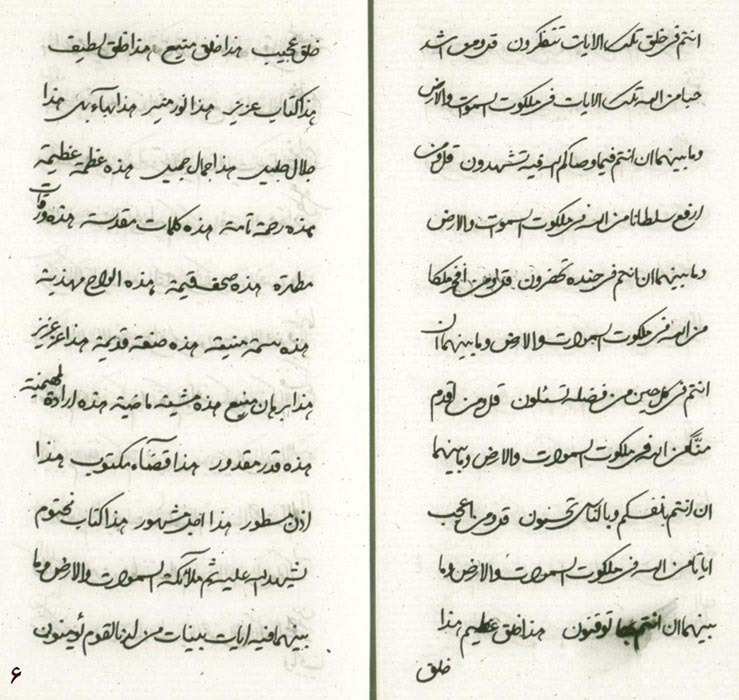 انتم فی خلق تلک الایات تتفکرون قل و من اشد
حبا من الله تلک الایات فی ملکوت السموات والارض
وما بینهما ان انتم فیما وصاکم الله فیه تشهدون قل و من
ارفع سلطانا من الله فی ملکوت السموات والارض
وما بینهما ان انتم فی جنده تحضرون قل و من افخر ملکا
من الله فی ملکوت السموات والارض وما بینهما ان
انتم فی کل حین من فضله تسئلون قل و من اقدم
منّاً من الله فی ملکوت السموات والارض وما بینهما
ان انتم بانفسکم وبالناس تحسنون قل و من اعجب
ایاتا من الله فی ملکوت السموات والارض وما
بینهما ان انتم بها توقنون هذا خلق عظیم هذا
خلق
خلق عجیب هذا خلق منیع هذا خلق لطیف
هذا کتاب عزیز هذا نور منیر هذا بهآء بهی هذا
جلال جلیل هذا جمال جمیل هذه عظمة عظیمة
هذه رحمة تامة هذه کلمات مقدسة هذه ورقات
مطهرة هذه صحف قیمة هذه الواح مهذبة
هذه سمة منیعة هذه صنعة قدیمة هذا عز عزیز
هذا برهان منیع هذه مشیة ماضیة هذه ارادة مهیمنة
هذه قدر مقدور هذا قضآء مکتوب هذا
اذن مسطور هذا اجل مشهور هذا کتاب مختوم
لیشهد الله علیه ثم ملآئکة السموات والارض وما
بینهما فیه ایات بینات من لدنا لقوم یؤمنون
۶